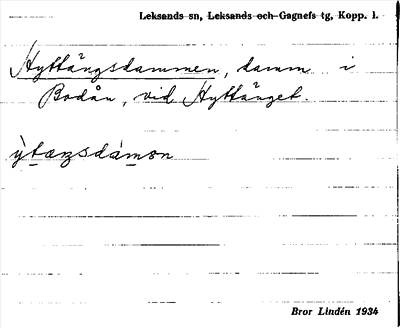 Leksands sn, Leksands och Gagnefs tg, Kopp. l.
Hyttängsdammen, damm i
Bodån, vid Hyttänget.
Bror Lindén 1934